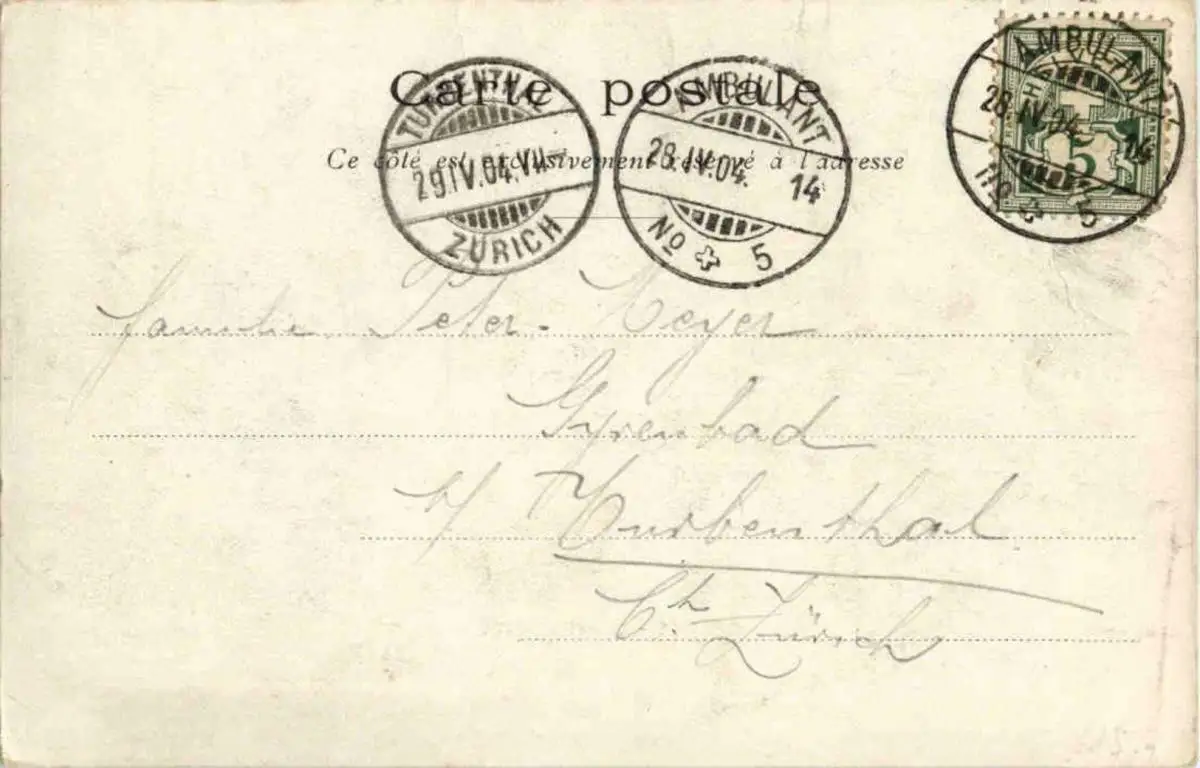 Carte postale
Ce côté est exclusivement réservé à l'adresse
TURBENTHAL
29.IV.04.VII
ZÜRICH
AMBULANT
28.IV.04. 14
No 5
AMBULANT
28.IV.04. 14
No 5
5
Familie Peter-Meyer
Gyrenbad
b/ Turbenthal
Ct. Zürich